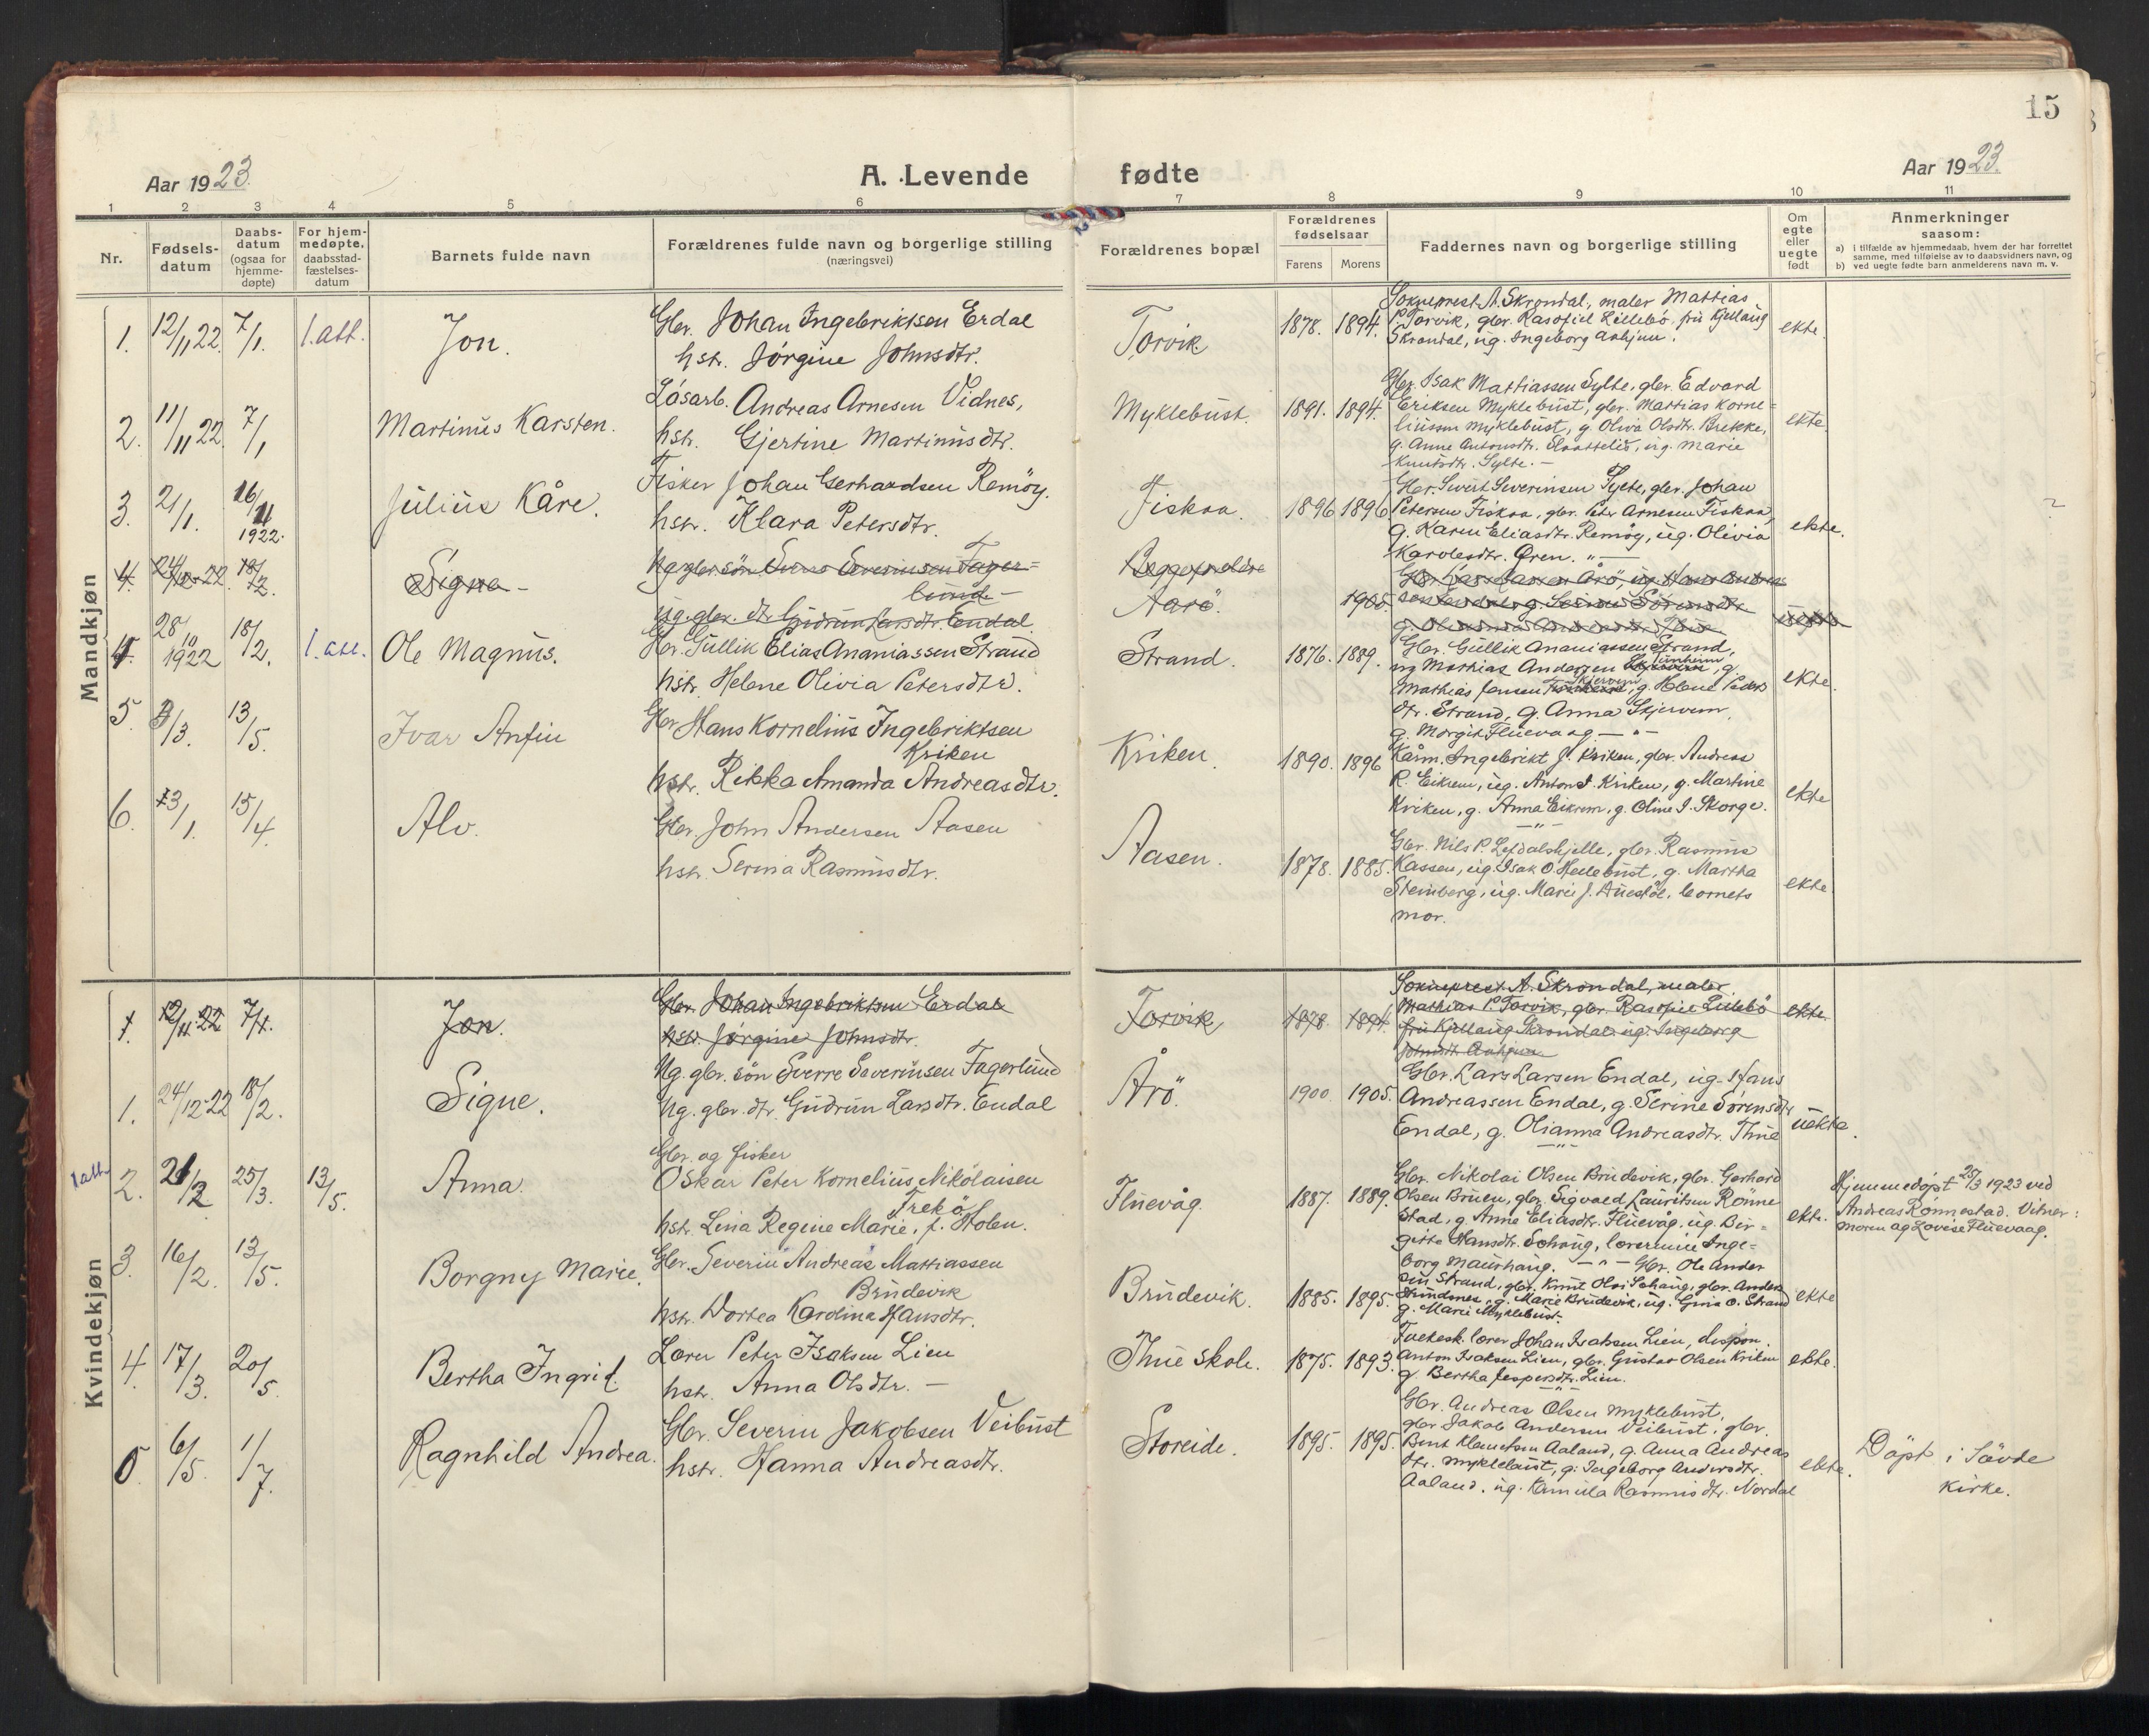 15
Aar 1923.
A. Levende fødte
Aar 1923.
1 2 3 4 5 6 7 8 9 10 11
Nr.
Fødselsdatum
Daabsdatum (ogsaa for hjemmedøpte)
For hjemmedøpte. daabsstadfæstelsesdatum
Barnets fulde navn
Forældrenes fulde navn og borgerlige stilling
(næringsvei)
Forældrenes bopæl
Forældrenes fødselsaar
Farens Morens
Faddernes navn og borgerlige stilling
Om egte eller uegte født
Anmerkninger
saasom:
a) i tilfælde av hjemmedaab, hvem der har forrettet
samme, med tilføielse av to daabsvidners navn, og
b) ved uegte fødte barn anmelderens navn m. v.
Mandkjøn
1. 12/11 22. 7/1. 1. att. Jon.
Gbr. Johan Ingebriktsen Erdal
hstr. Jørgine Johnsdtr.
Torvik 1878. 1894.
Sokneprest A. Skrondal, maler Mattias
P. Torvik, gbr. Rasofiel Lillebö, fru Kjellaug
Skrondal, ug. Ingeborg Aahjem.
ekte.
2. 11/11 22. 7/1 Martinus Karsten.
Løsarb. Andreas Arnesen Vidnes,
hstr. Gjertine Martinusdtr.
Myklebust. 1891. 1894.
Gbr. Isak Mattiassen Sylte, gbr. Edvard
Eriksen Myklebust, gbr. Mattias Korne=
liussen Myklebust, g. Oliva Olsdtr. Brekke,
g. Anne Antonsdtr. Slaattelid, ug. Marie
Knutsdtr. Sylte. —
ekte.
3. 2/1. 16/4 1922. Julius Kåre.
Fisker Johan Gerhardsen Remöy.
hstr. Klara Petersdtr.
Fiskaa. 1896 1896
Gbr. Sivert Severinsen Sylte, gbr. Johan
Petersen Fiskaa, gbr. Peter Arnesen Fiskaa,
g. Karen Eliasdtr. Remöy, ug. Olivia
Karolesdtr. Ören. "—
ekte.
?
4. 24/12-22. 18/2. Signe —
Ug. gbr. sön Sverre Severinsen Fager=
lund —
Ug. gbr. dtr. Gudrun Larsdtr. Endal
Begge foreldre
Aarö. 1905.
4. 28/10 1922 18/2. 1. att. Ole Magnus.
Gbr. Gullik Elias Ananiassen Strand
hstr. Helene Olivia Petersdtr.
Strand. 1876. 1889.
Gbr. Gullik Ananiassen Strand,
ug Mathias Andersen Tunheim, g
Mathias Jensen Skjervem, g. Helene Peders
dtr. Strand, g. Anna Skjervem,
g. Margit Fluevaag — " —
ekte.
5. 3/3. 13/5. Ivar Anfin
Gbr Hans Kornelius Ingebriktsen
Kriken
hstr. Rikka Amanda Andreasdtr.
Kriken. 1890. 1896
Kårm. Ingebrikt J. Kriken, gbr. Andreas
R. Eikrem, ug. Anton I. Kriken, g. Martine
Kriken, g. Anna Eikrem, g. Oline I. Skorge.
— " —
ekte
6. 13/1. 15/4. Alv.
Gbr. John Andersen Aasen
hstr. Serina Rasmusdtr.
Aasen. 1878. 1885.
Gbr. Nils P. Lefdalskjelle, gbr. Rasmus
Kassen, ug. Isak O. Hellebust, g. Martha
Steinberg, ug. Marie J. Auestöl, barnets
mor.
ekte
Kvindekjøn
1. 12/11-22 7/1. Jon.
Gbr. Johan Ingebriktsen Erdal
hstr. Jørgine Johnsdtr.
Torvik 1878. 1894.
Sokneprest A. Skrondal, maler
Mathias P. Torvik, gbr. Rasofiel Lillebö
fru Kjellaug Skrondal, ug. Ingeborg
Johnsdtr. Aahjem
ekte.
1. 24/12-22 18/2. Signe.
Ug. gbr. sön Sverre Severinsen Fagerlund
Ug. gbr. dtr. Gudrun Larsdtr. Endal
Årö. 1900 1905.
Gbr. Lars Larsen Endal, ug. Hans
Andreassen Endal, g. Serine Sørensdtr
Endal, g. Olianna Andreasdtr. Thue
— " —
uekte.
1 att. 2. 21/2 25/3. 13/5. Anna.
Gbr. og fisker
Oskar Peter Kornelius Nikolaisen
Trekö
hstr. Lina Regine Marie, f. Holen.
Fluevåg. 1887. 1889.
Gbr. Nikolai Olsen Brudevik, gbr. Gerhard
Olsen Bruen, gbr. Sigvald Lauritsen Rønne
stad, g. Anne Eliasdtr. Fluevåg, ug. Bir=
gitte Hansdtr. Schaug, lærerinne Inge=
borg Maurhaug. — " —
ekte.
Hjemmedöpt 25/3 1923 ved
Andreas Rønnestad. Vitner:
moren og Lovise Fluevaag.
3. 16/2. 13/5. Borgny Marie.
Gbr. Severin Andreas Mattiassen
Brudevik
hstr. Dortea Kardina Hansdtr.
Brudevik. 1885. 1895.
Gbr. Ole Ander
sen Strand, gbr. Knut Olai Schaug, gbr. Anders
Strindmes, g. Marie Brudevik, ug. Gina O. Strand
g. Marie Myklebust.
ekte
4. 17/3. 20/5. Bertha Ingrid.
Lærer Peter Isaksen Lien
hstr. Anna Olsdtr. —
Thue skole. 1875. 1893.
Folkesk. lærer Johan Isaksen Lien, dispon.
Anton Isaksen Lien, gbr. Gustav Olsen Kriken
g. Bertha Jespersdtr. Lien.
— " —
ekte.
5. 6/5. 1/7. Ragnhild Andrea.
Gbr. Severin Jakobsen Veibust
hstr. Hanna Andreasdtr.
Storeide. 1895. 1895.
Gbr. Andreas Olsen Myklebust,
gbr. Jakob Andersen Veibust, gbr.
Bent Klemetsen Aaland, g. Anna Andreas
dtr. Myklebust, g. Ingeborg Andersdtr.
Aaland, ug. Kamilla Rasmusdtr. Nordal
ekte.
Döpt i Sövde
kirke.